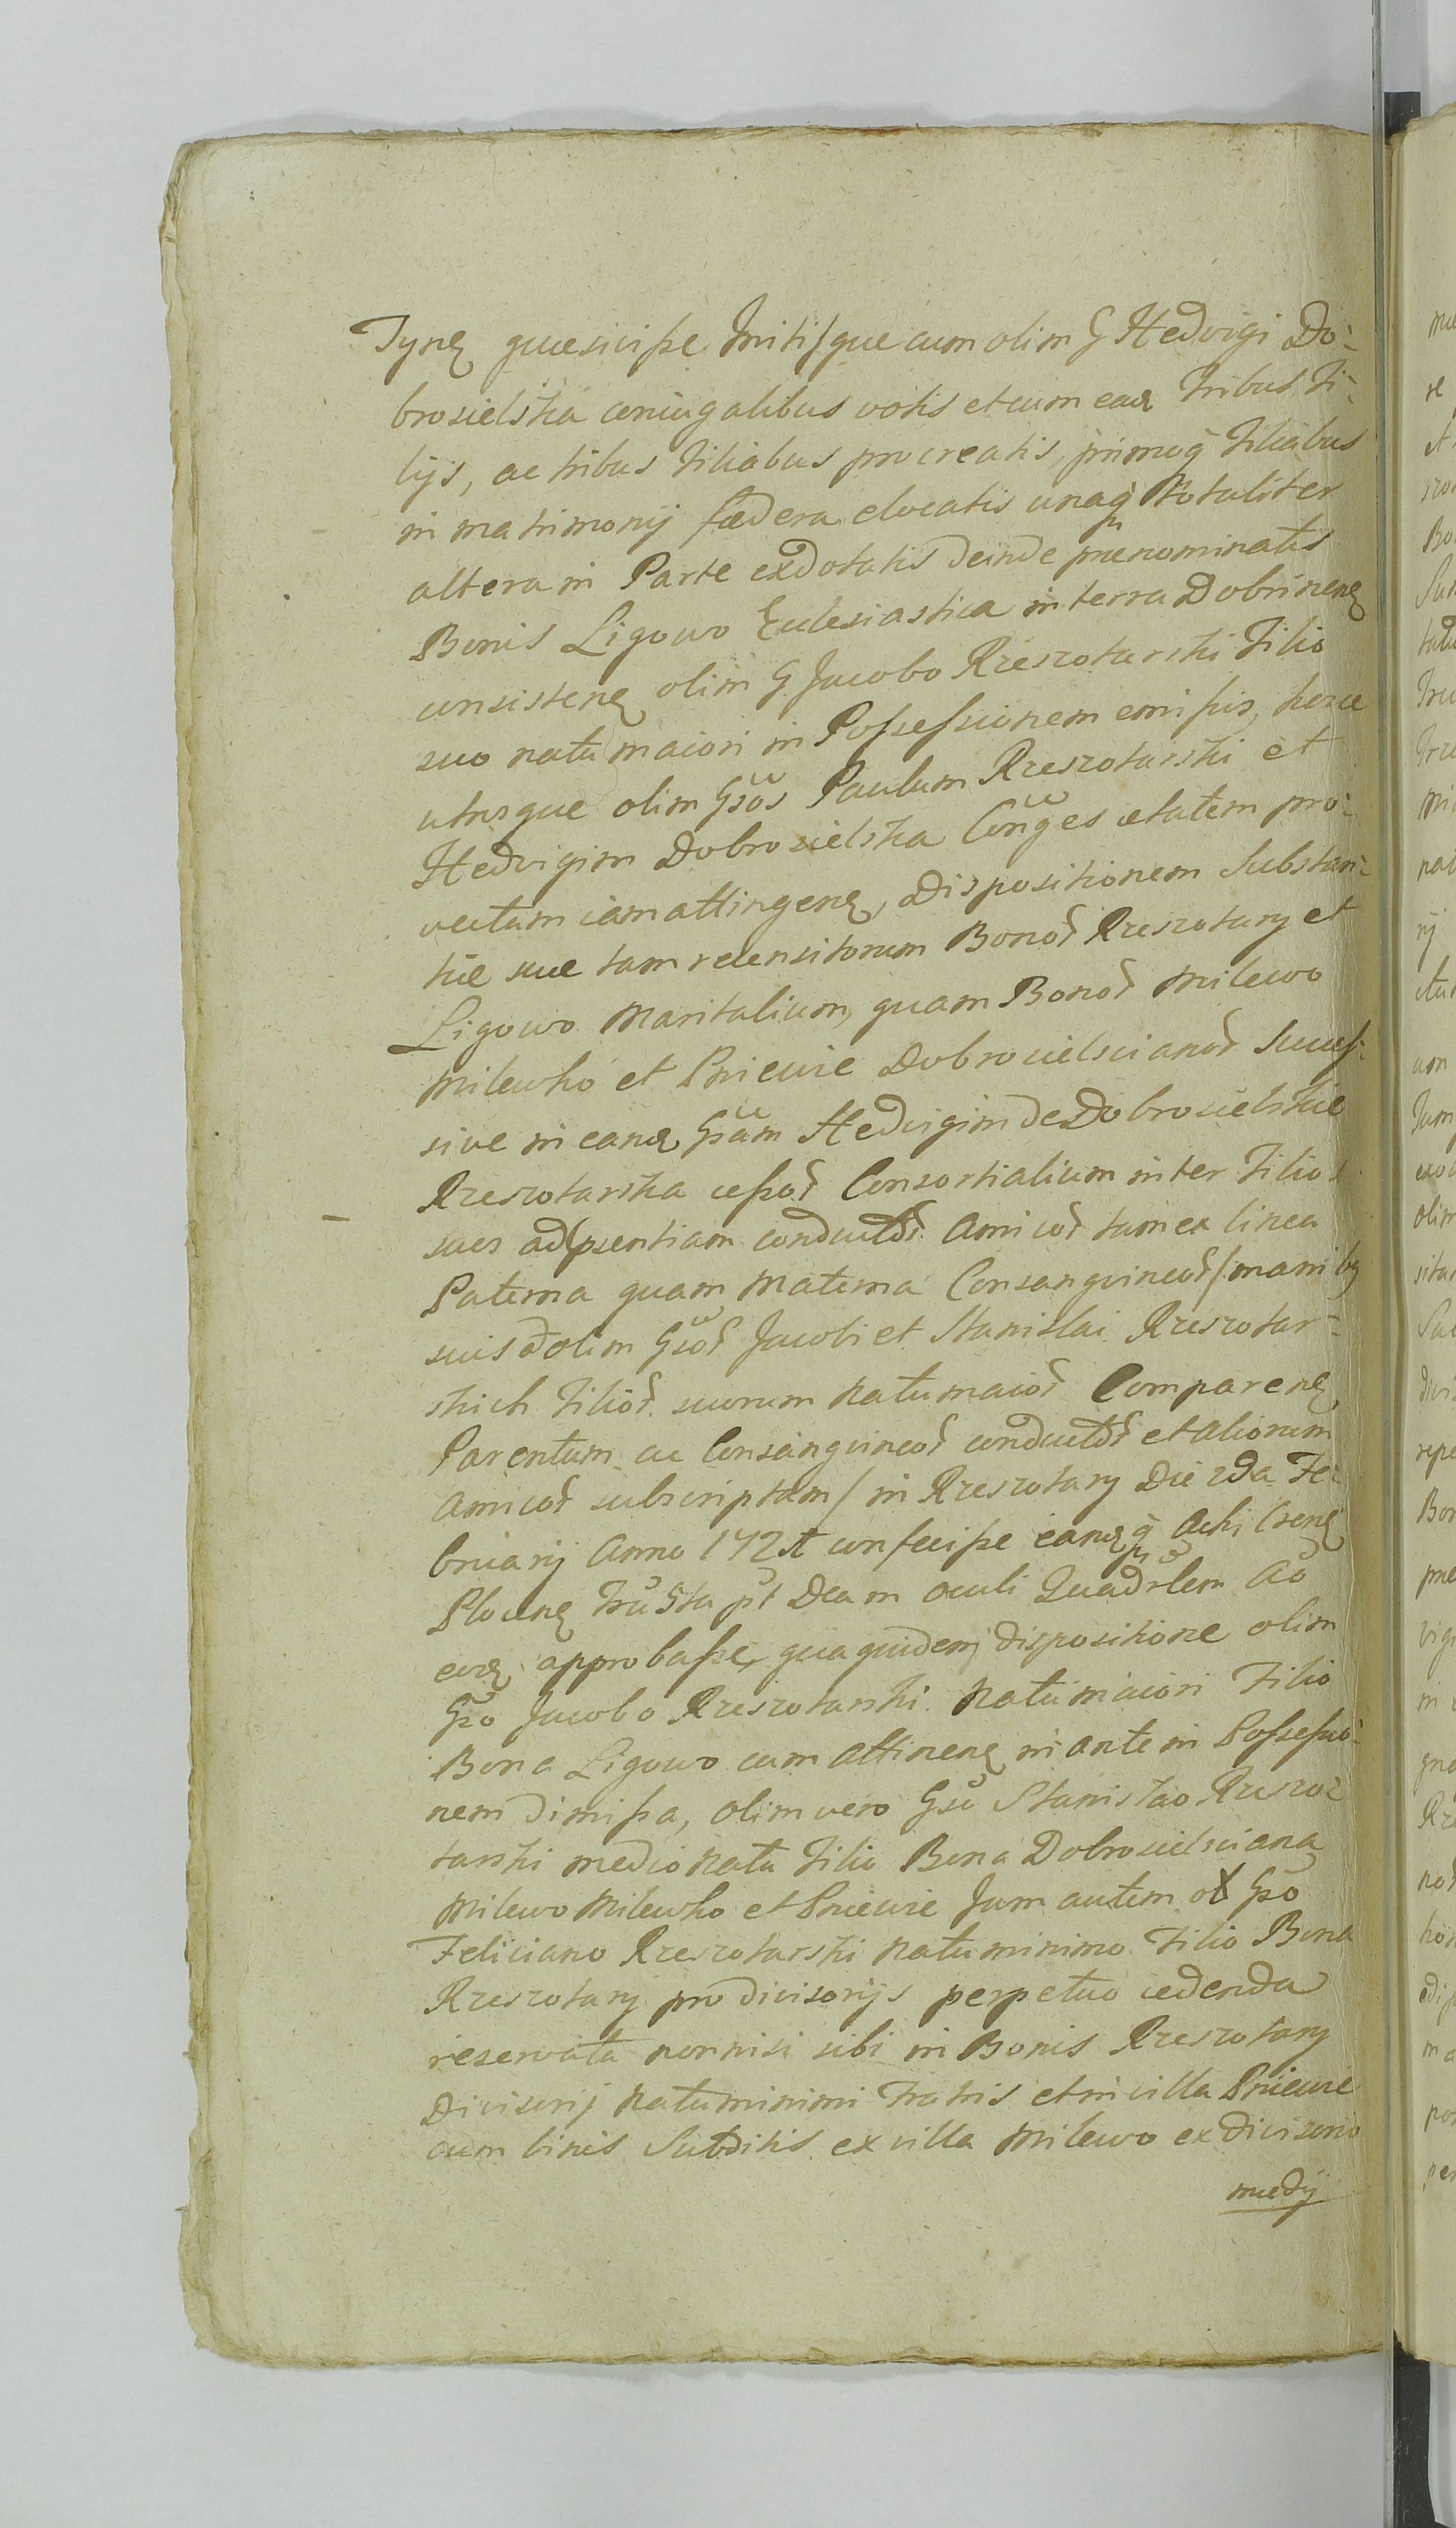 Tyne quæsivisse Initisque cum olim G Hedvigi Do-
brosielska coniugalibus votis et cum eade Tribus Fi-
lijs, ac tribus Filiabus procreatis, primuq Filiabus
in matrimonij fœdera elocatis unaq totaliter
altera in Parte exdotatis deinde prænominatis
Bonis Ligowo Eclesiastica in terra Dobrinen
consisten olim G Jacobo Rzeszotarski Filio
suo natu maiori in Possessionem emissis, hosce
utrosque olim Gsos Paulum Rzeszotarski et
Hedvigim Dobrosielska Conges ætatem pro-
vectam iam attingen, Dispositionem Substan-
tiæ suæ tam recensitorum Bonor Rzeszotary et
Ligowo Maritalium, quam Bonor Milewo
Milewko et Pniewie Dobrosielscianor Succes-
sive in eane Gsam Hedvigim de Dobrosielskie
Rzeszotarska cessor Consortialium inter Filios
suos ad psentiam conductor Amicor tam ex linea
Paterna quam Materna Consanguineor / manibq
suis & olim Gsor Jacobi et Stanislai Rzeszotar-
skich Filior suorum Natu maior Comparen
Parentum ac Consanguineor conductor et aliorum
Amicor subscriptam / in Rzeszotary Die 2da Fe-
bruarij Anno 172 confecisse eaneq Acti Csen
Plocen pt Dcam oculi Quadrlem Ao
eode approbasse, qua quidem dispositione olim
Gso Jacobo Rzeszotarski Natu maiori Filio
Bona Ligowo cum attinen in ante in Possessio-
nem dimissa, olim vero Gso Stanislao Rzeszo-
tarski medio Natu Filio Bona Dobrosielsciana
Milewo Milewko et Pniewie Jam autem ol Gso
Feliciano Rzeszotarski Natu minimo Filio Bona
Rzeszotary pro divisorijs perpetuo cedenda
reservata nonnisi sibi in Bonis Rzeszotary
Divisorij Natu minimi Fratris et in villa Pniewie
cum binis Subditis ex villa Milewo ex divisorio
medij